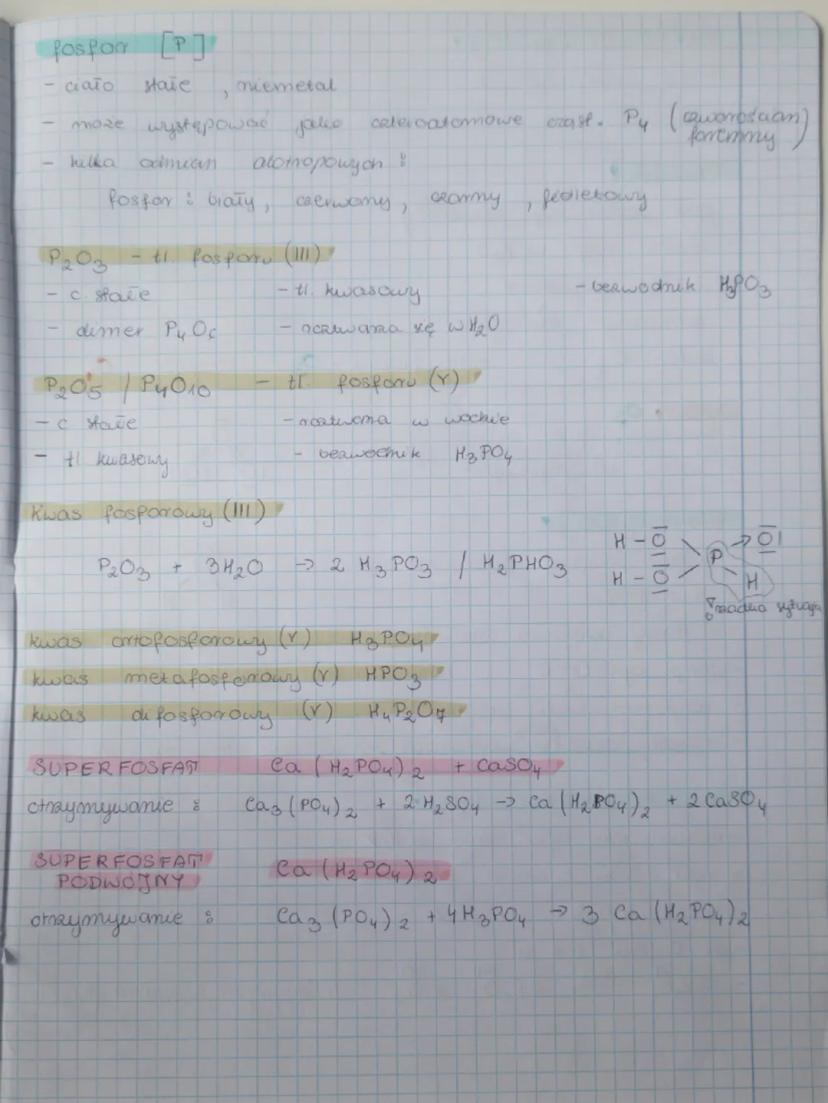 fosfor [P]
- ciało stałe , niemetal
- może występować jako czteroatomowe cząst. P₄ (czworościan foremny)
- kilka odmian alotropowych :
fosfor : biały, czerwony, czarny, fioletowy
P₂O₃ - tl. fosforu (III)
- c. stałe - tl. kwasowy - bezwodnik H₃PO₃
- dimer P₄O₆ - rozpuszcza się w H₂O
P₂O₅ / P₄O₁₀ - tl. fosforu (V)
- c stałe - roztwarza w wodzie
- tl kwasowy - bezwodnik H₃PO₄
kwas fosforowy (III)
P₂O₃ + 3H₂O → 2 H₃PO₃ / H₂PHO₃
H - O
P → O
H - O
H
kwas ortofosforowy (V) H₃PO₄
kwas metafosforowy (V) HPO₃
kwas difosforowy (V) H₄P₂O₇
SUPERFOSFAT Ca(H₂PO₄)₂ + CaSO₄
otrzymywanie : Ca₃(PO₄)₂ + 2H₂SO₄ → Ca(H₂PO₄)₂ + 2CaSO₄
SUPERFOSFAT
PODWÓJNY Ca(H₂PO₄)₂
otrzymywanie : Ca₃(PO₄)₂ + 4H₃PO₄ → 3 Ca(H₂PO₄)₂